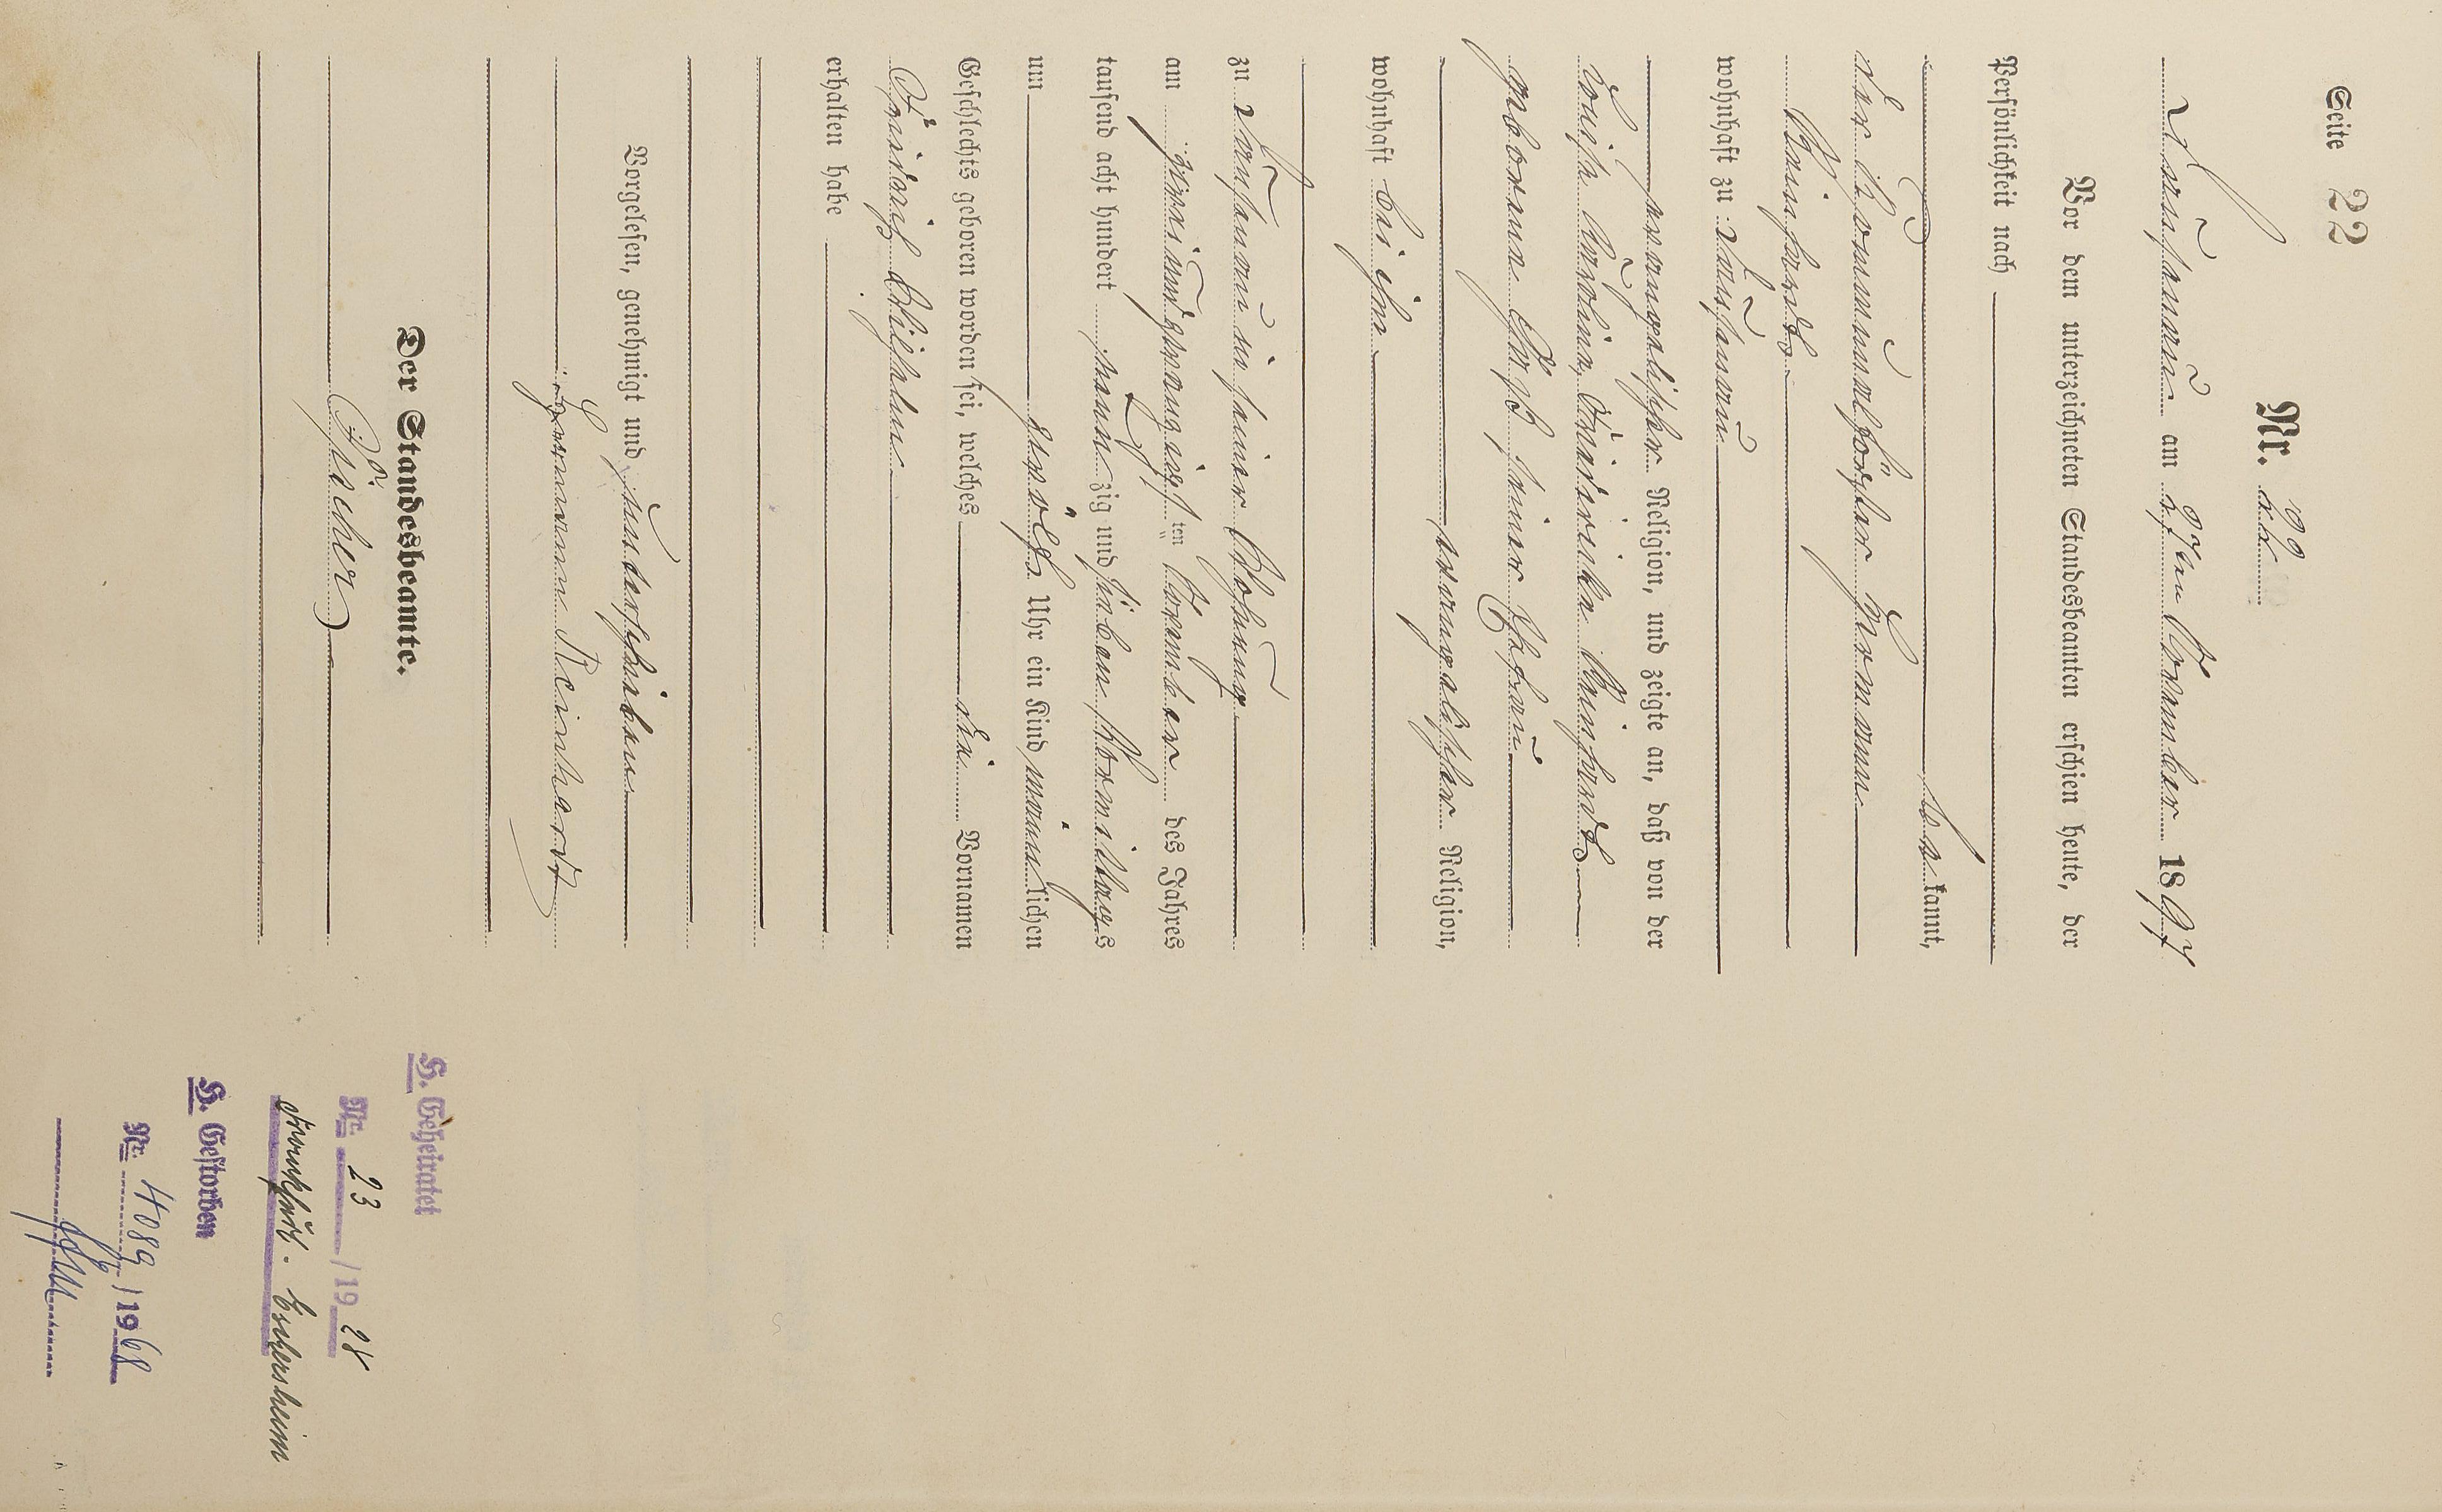 Seite 22
Nr. 22.
Dausenau am 27ten November 1897
Vor dem unterzeichneten Standesbeamten erschien heute, der
Persönlichkeit nach
bekannt,
der Kommunalförster Hermann
Reinhardt
wohnhaft zu Dausenau
evangelischer Religion, und zeigte an, daß von der
Louise Karoline, Friederike Reinhardt
geborene seiner Ehefrau
evangelischer Religion,
wohnhaft bei ihm
zu Dausenau in seiner Wohnung
am zwei und zwanzigsten November des Jahres
tausend acht hundert neunzig und sieben Vormittags
um zwölf Uhr ein Kind männlichen
Geschlechts geboren worden sei, welches die Vornamen
Friedrich Wilhelm
erhalten habe
Vorgelesen, genehmigt und unterschrieben
Hermann Reinhardt
Der Standesbeamte.
Fischer
H. Geheiratet
Nr. 23 / 19 28
Frankfurt - Eschersheim
H. Gestorben
Nr. 4089 / 19 68
Ffm